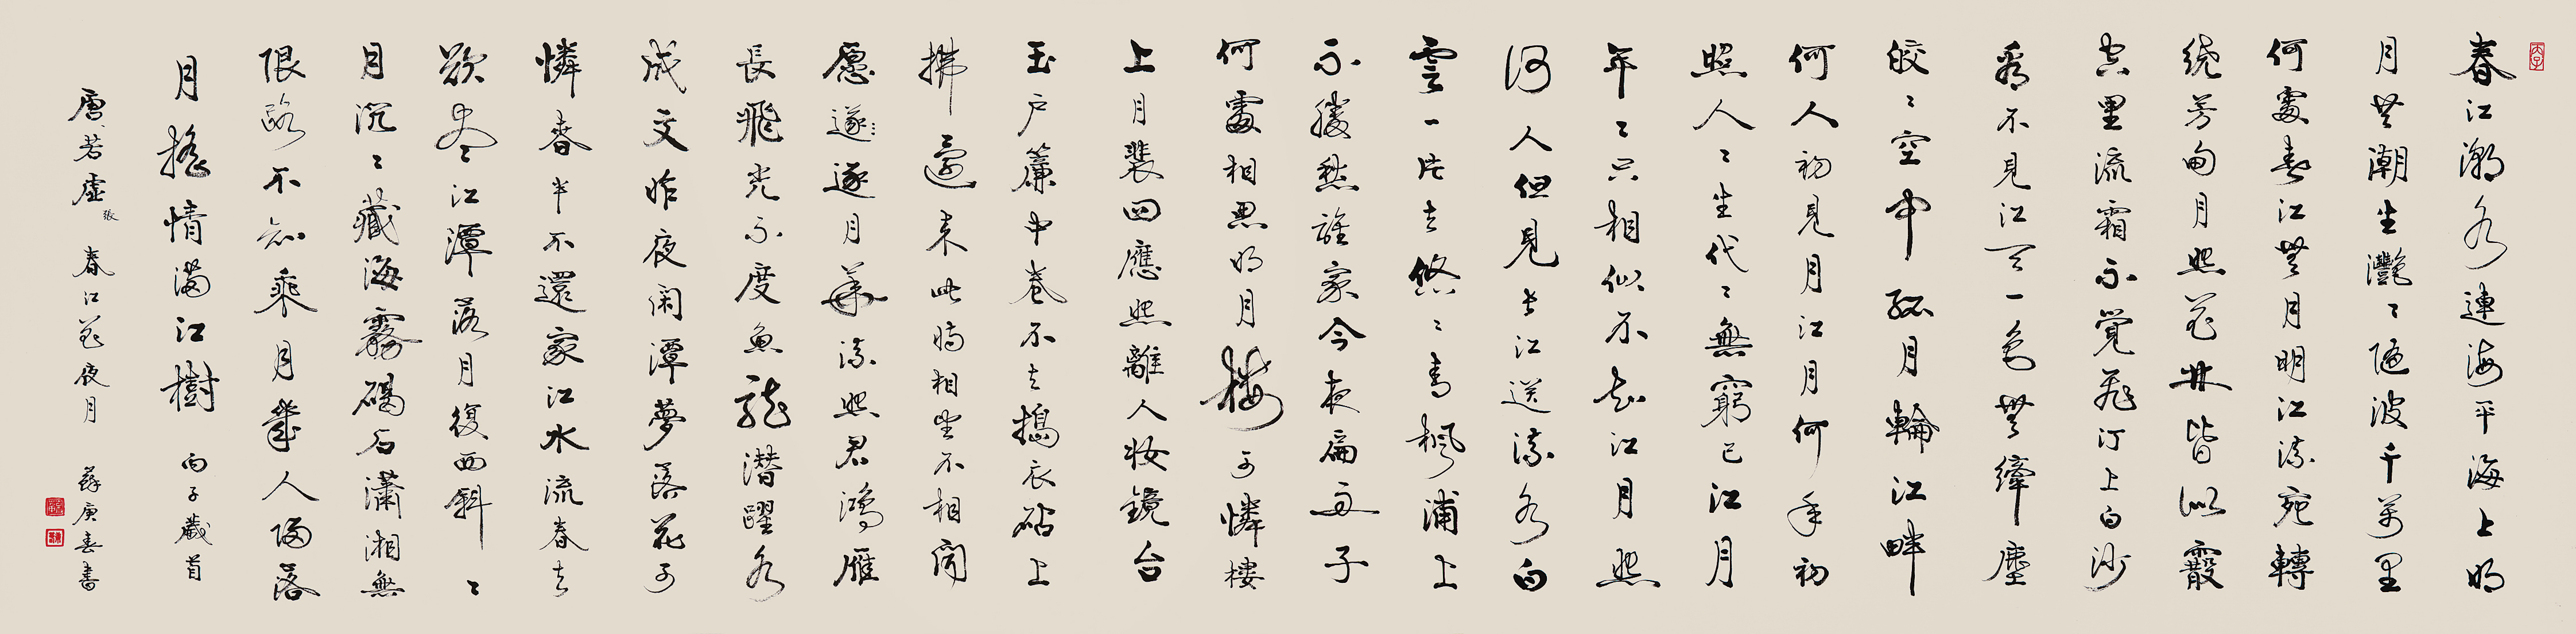 丙子
春江潮水連海平海上明
月共潮生灩〻随波千萬里
何處春江無月明江流宛轉
繞芳甸月照花林皆似霰
空里流霜不覺飛汀上白沙
看不見江天一色無纖塵
皎〻空中孤月輪江畔
何人初見月江月何年初
照人〻生代〻無窮已江月
年〻只相似不知江月照
何人但見長江送流水白
雲一片去悠〻青楓浦上
不勝愁誰家今夜扁舟子
何處相思明月樓可憐樓
上月裴回應照離人妝鏡台
玉戶簾中卷不去搗衣砧上
拂還来此時相望不相聞
愿遂逐月華流照君鴻雁
長飛光不度魚龍潛躍水
成文昨夜閑潭夢落花可
憐春半不還家江水流春去
欲尽江潭落月復西斜〻
月沉〻藏海霧碣石瀟湘無
限路不知乘月幾人歸落
月搖情滿江樹 丙子歲首
唐若虛張 春江花夜月 蘇庚春書